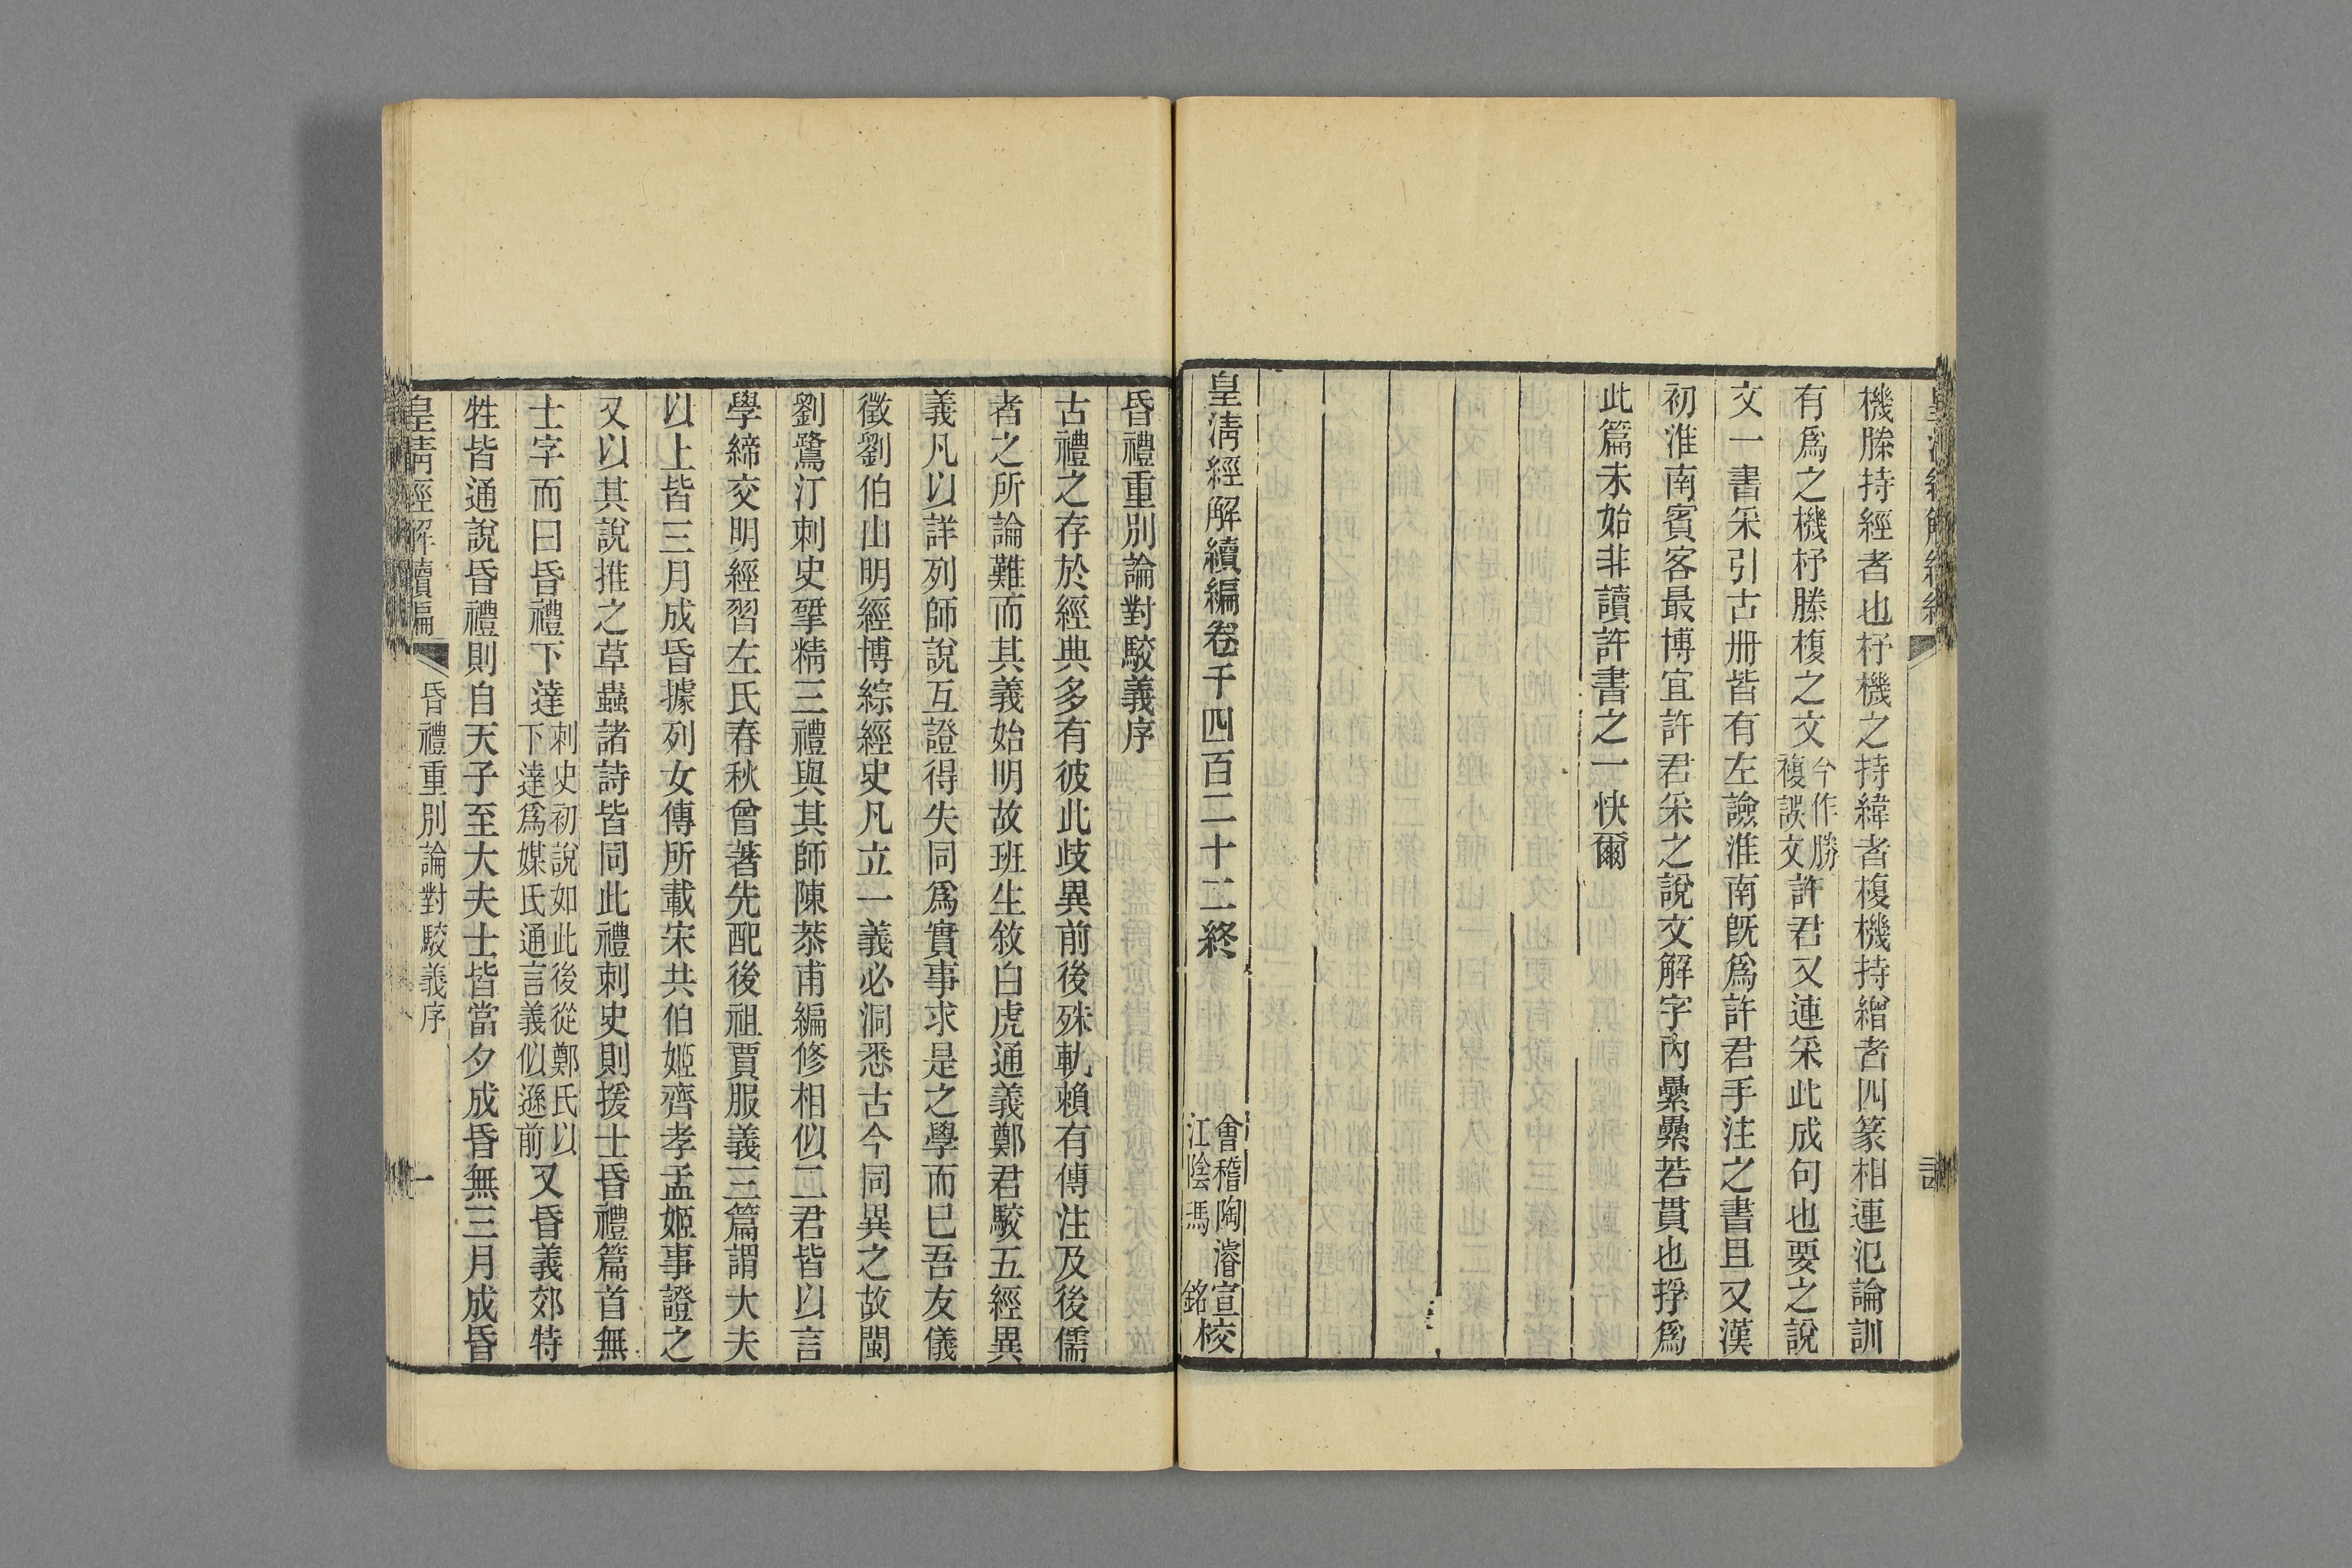 機榺持經者也杼機之持緯者椱機持繒者四篆相連氾論訓
有爲之機杼勝複之文今作勝複誤文許君又連采此成句也要之說
文一書采引古冊皆有左譣淮南旣爲許君手注之書且又漢
初淮南賓客最博宜許君采之說文解字內纍纍若貫也捋爲
此篇未始非讀許書之一快爾
皇淸經解續編卷千四百二十二終
會稽陶濬宣
江陰馮銘校
昏禮重別論對駮義序
古禮之存於經典多有彼此歧異前後殊軌賴有傳注及後儒
者之所論難而其義始明故班生敘白虎通義鄭君駮五經異
義凡以詳列師說互證得失同爲實事求是之學而已吾友儀
徵劉伯山明經博綜經史凡立一義必洞悉古今同異之故閩
劉鷺汀刺史揅精三禮與其師陳恭甫編修相似二君皆以言
學締交明經習左氏春秋曾著先配後祖賈服義三篇謂大夫
以上皆三月成昏據列女傳所載宋共伯姬齊孝孟姬事證之
又以其說推之草蟲諸詩皆同此禮刺史則援士昏禮篇首無
士字而曰昏禮下達刺史初說如此後從鄭氏以下達爲媒氏通言義似遜前又昏義郊特
牲皆通說昏禮則自天子至大夫士皆當夕成昏無三月成昏
皇淸經解續編　昏禮重別論對駮義序　一